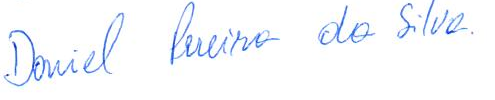 Daniel Pereira da Silva.